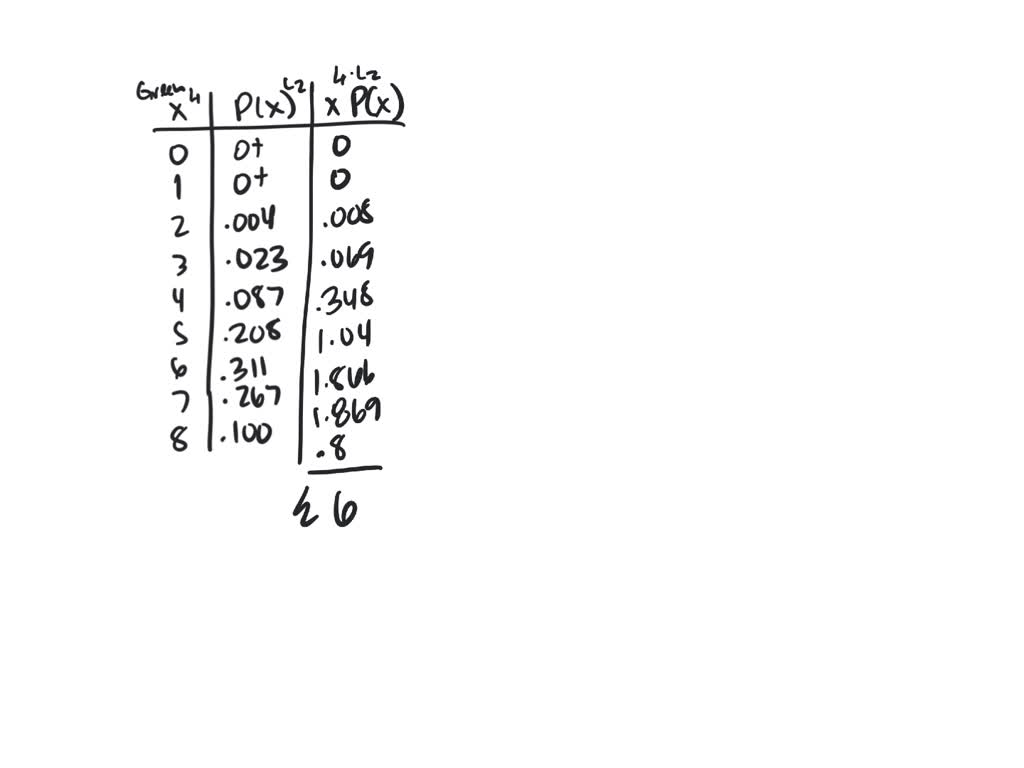 4·L2
Green 4 L2
x P(x) x P(x)
0 0+ 0
1 0+ 0
2 .004 .008
3 .023 .069
4 .087 .348
5 .208 1.04
6 .311 1.866
7 .267 1.869
8 .100 .8
Σ 6